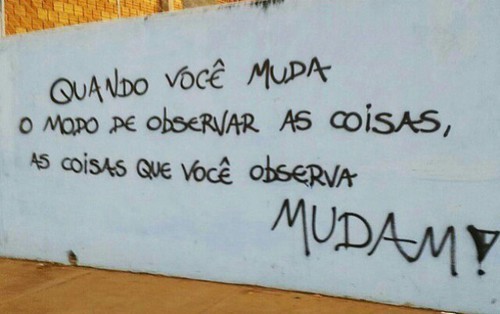 QUANDO VOCÊ MUDA
O MODO DE OBSERVAR AS COISAS,
AS COISAS QUE VOCÊ OBSERVA
MUDAM!